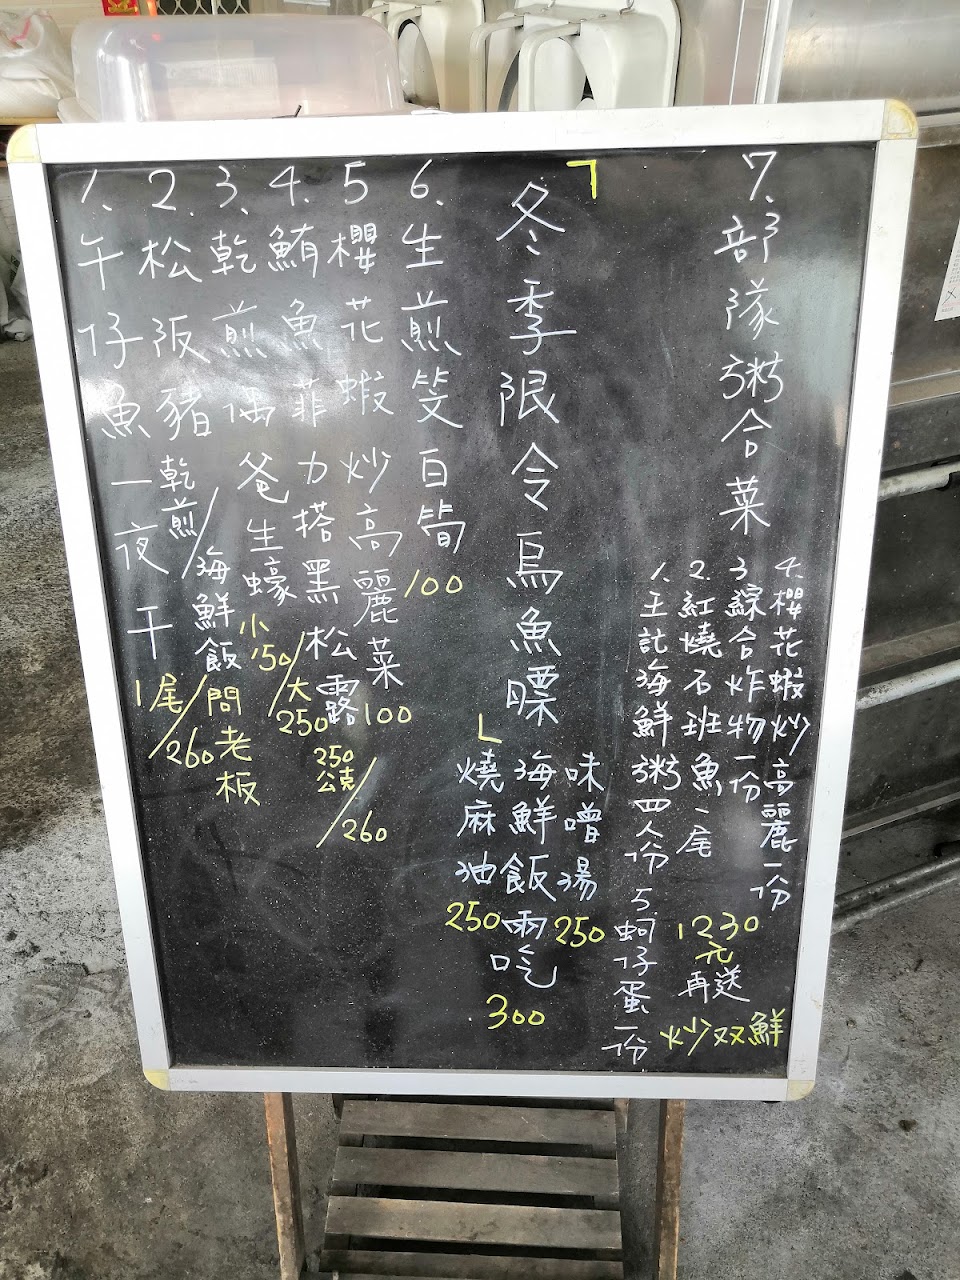 1.午仔魚一夜干 1尾/260
2.松阪豬 乾煎/海鮮飯 問老板
3.乾煎 爸生蠔 小150/大250
4.鮪魚菲力搭黑松露 250公克/260
5櫻花蝦炒高麗菜100
6.生煎筊白筍100
「冬季限令烏魚膘」
燒麻油250
海鮮飯兩吃300
味噌湯250
7.部隊粥合菜
1.王記海鮮粥四人份
2.紅燒石班魚一尾
3綜合炸物一份
4.櫻花蝦炒高麗一份
5.蚵仔蛋一份
1230元
再送
炒双鮮